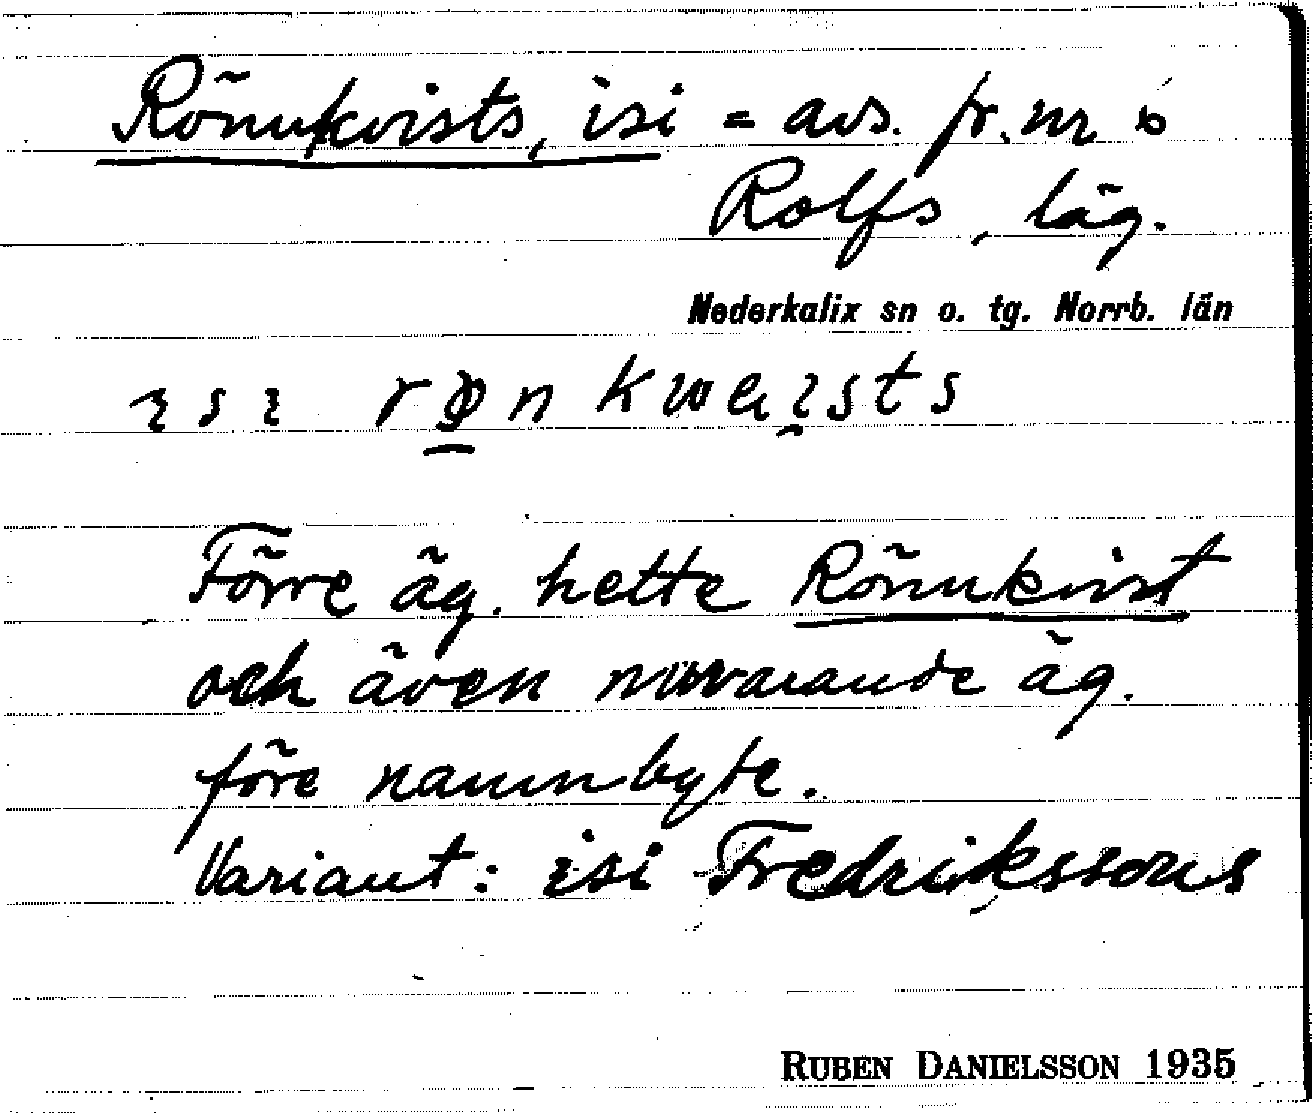 Rönnkvists, isi = avs. fr. nr 6
Rolfs, läg.
Nederkalix sn o. tg. Norrb. län
Förre äg. hette Rönnkvist
och även nuvarande äg.
före namnbyte.
Variant: isi Fredrikssons
RUBEN DANIELSSON 1935